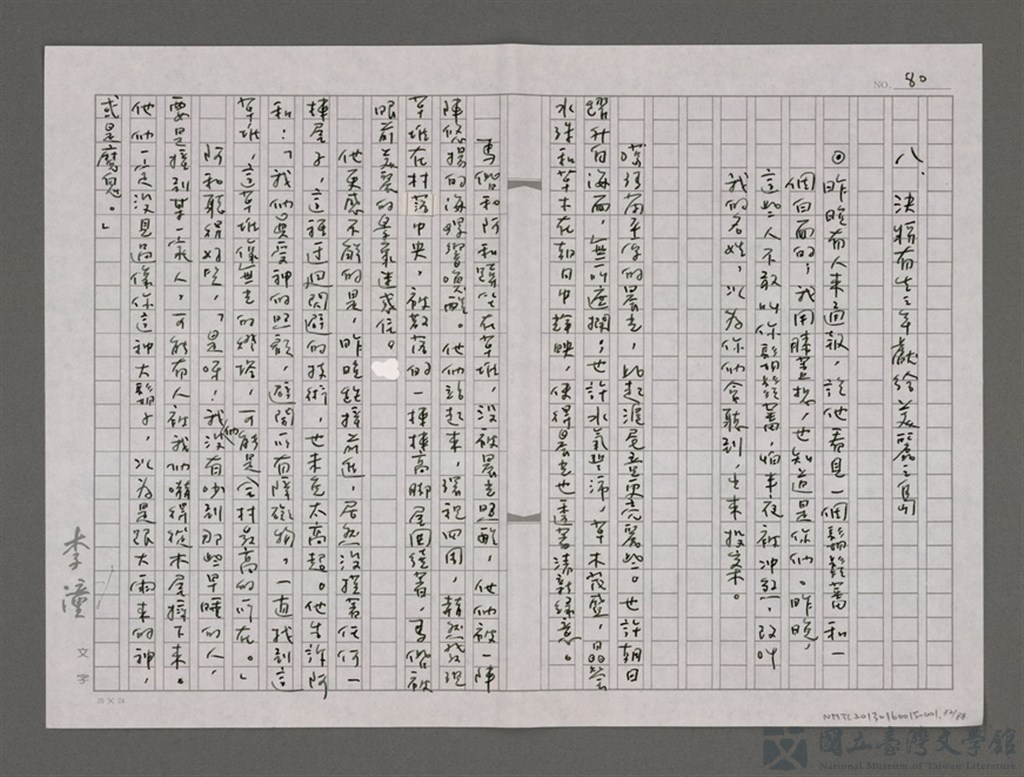 NO. 80
八、決將有生之年獻給美麗之島
◎昨晚有人來通報，說他看見一個鬍鬚蕃和一
個白面的，我用膝蓋想，也知道是你們。昨晚，
這些人不敢叫你鬍鬚蕃，怕半夜被沖煞，改叫
我的名姓，以為你們會聽到，出來投案。
噶瑪蘭平原的晨光，比起滬尾壹更亮麗些。也許朝日
躍升自海面，無所遮攔；也許水氣豐沛，草木茂盛，晶瑩
水珠和草木在朝日中輝映，使得晨光也透著清新綠意。
馬偕和阿和蹲坐在草堆，沒被晨光照醒，他們被一陣
陣悠揚的海螺聲喚醒。他們站起來，環視四周，赫然發現
草堆在村落中央，被散落的一棟棟高腳屋圍繞著，馬偕被
眼前美麗的景象迷惑住。
他更感不解的是，昨晚跑撞前進，居然沒撞著任何一
棟屋子，這種迂迴閃避的技術，也未免太高超。他告訴阿
和：「我們要受神的照顧，避開所有障礙物，一直找到這
草堆，這草堆像無光的燈塔，可能是全村最高的所在。」
阿和聽得好笑，「是呀，我們沒有吵到那些早睡的人，
要是撞到某一家人，可能有人被我們嚇得從木屋摔下來。
他們一定沒見過像你這種大鬍子，以為是跟大雨來的神，
或是魔鬼。」
李潼
文字
25 × 24
NMTL20130160015-001. 82/88
國立臺灣文學館
National Museum of Taiwan Literature